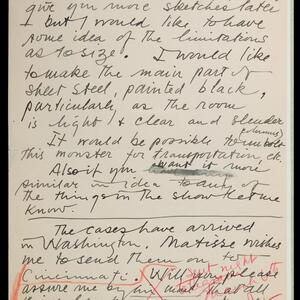 give you more sketches later
but I would like to have
some idea of the limitations
as to size. I would like
to make the main part of
sheet steel, painted black,
particularly as the room
is light & clear and slender
columns)
It would be possible to unbolt
this monster for transportation, etc.
Also if you want it more
similar in idea to any of
the things in the show let me
know.
The cases have arrived
in Washington. Matisse wishes
me to send them on to
Cincinnati. Will you please
assure me by that all